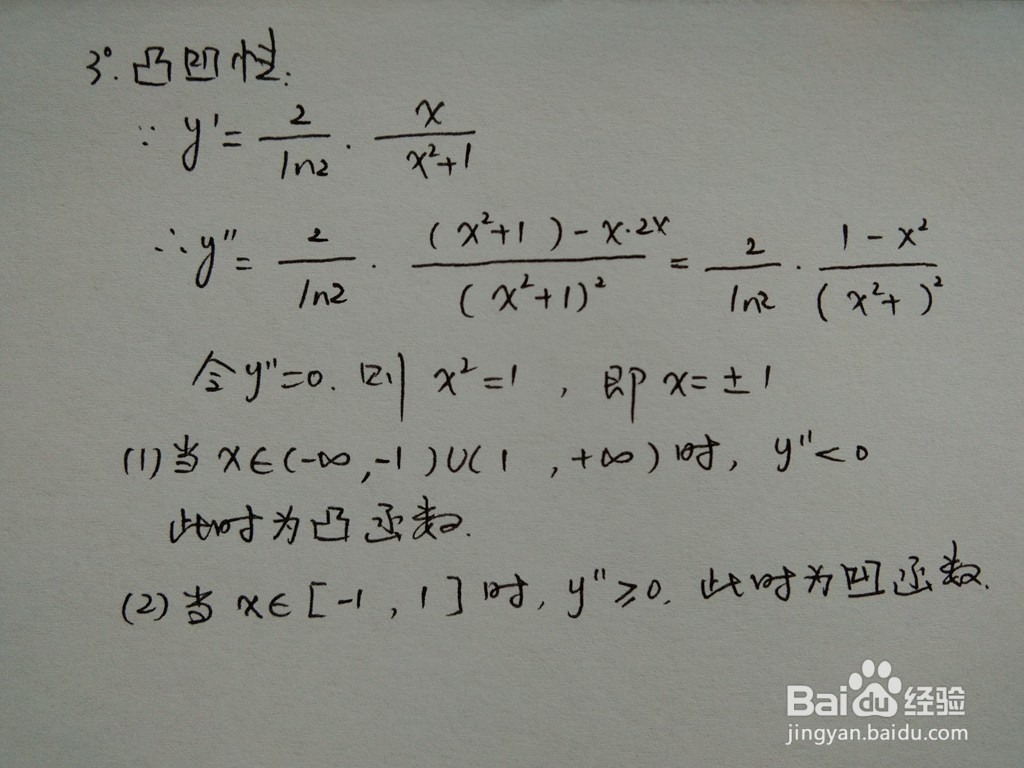 3°. 凸凹性.
∵ y' = 2/ln2 · x/(x²+1)
∴ y" = 2/ln2 · ((x²+1)-x·2x)/(x²+1)² = 2/ln2 · (1-x²)/(x²+ )²
令y"=0. 则 x²=1 , 即 x=±1
(1)当 x∈(-∞,-1)∪(1 ,+∞)时, y"<0
此时为凸函数.
(2)当 x∈[-1,1]时, y"≥0. 此时为凹函数.
Baidu经验
jingyan.baidu.com